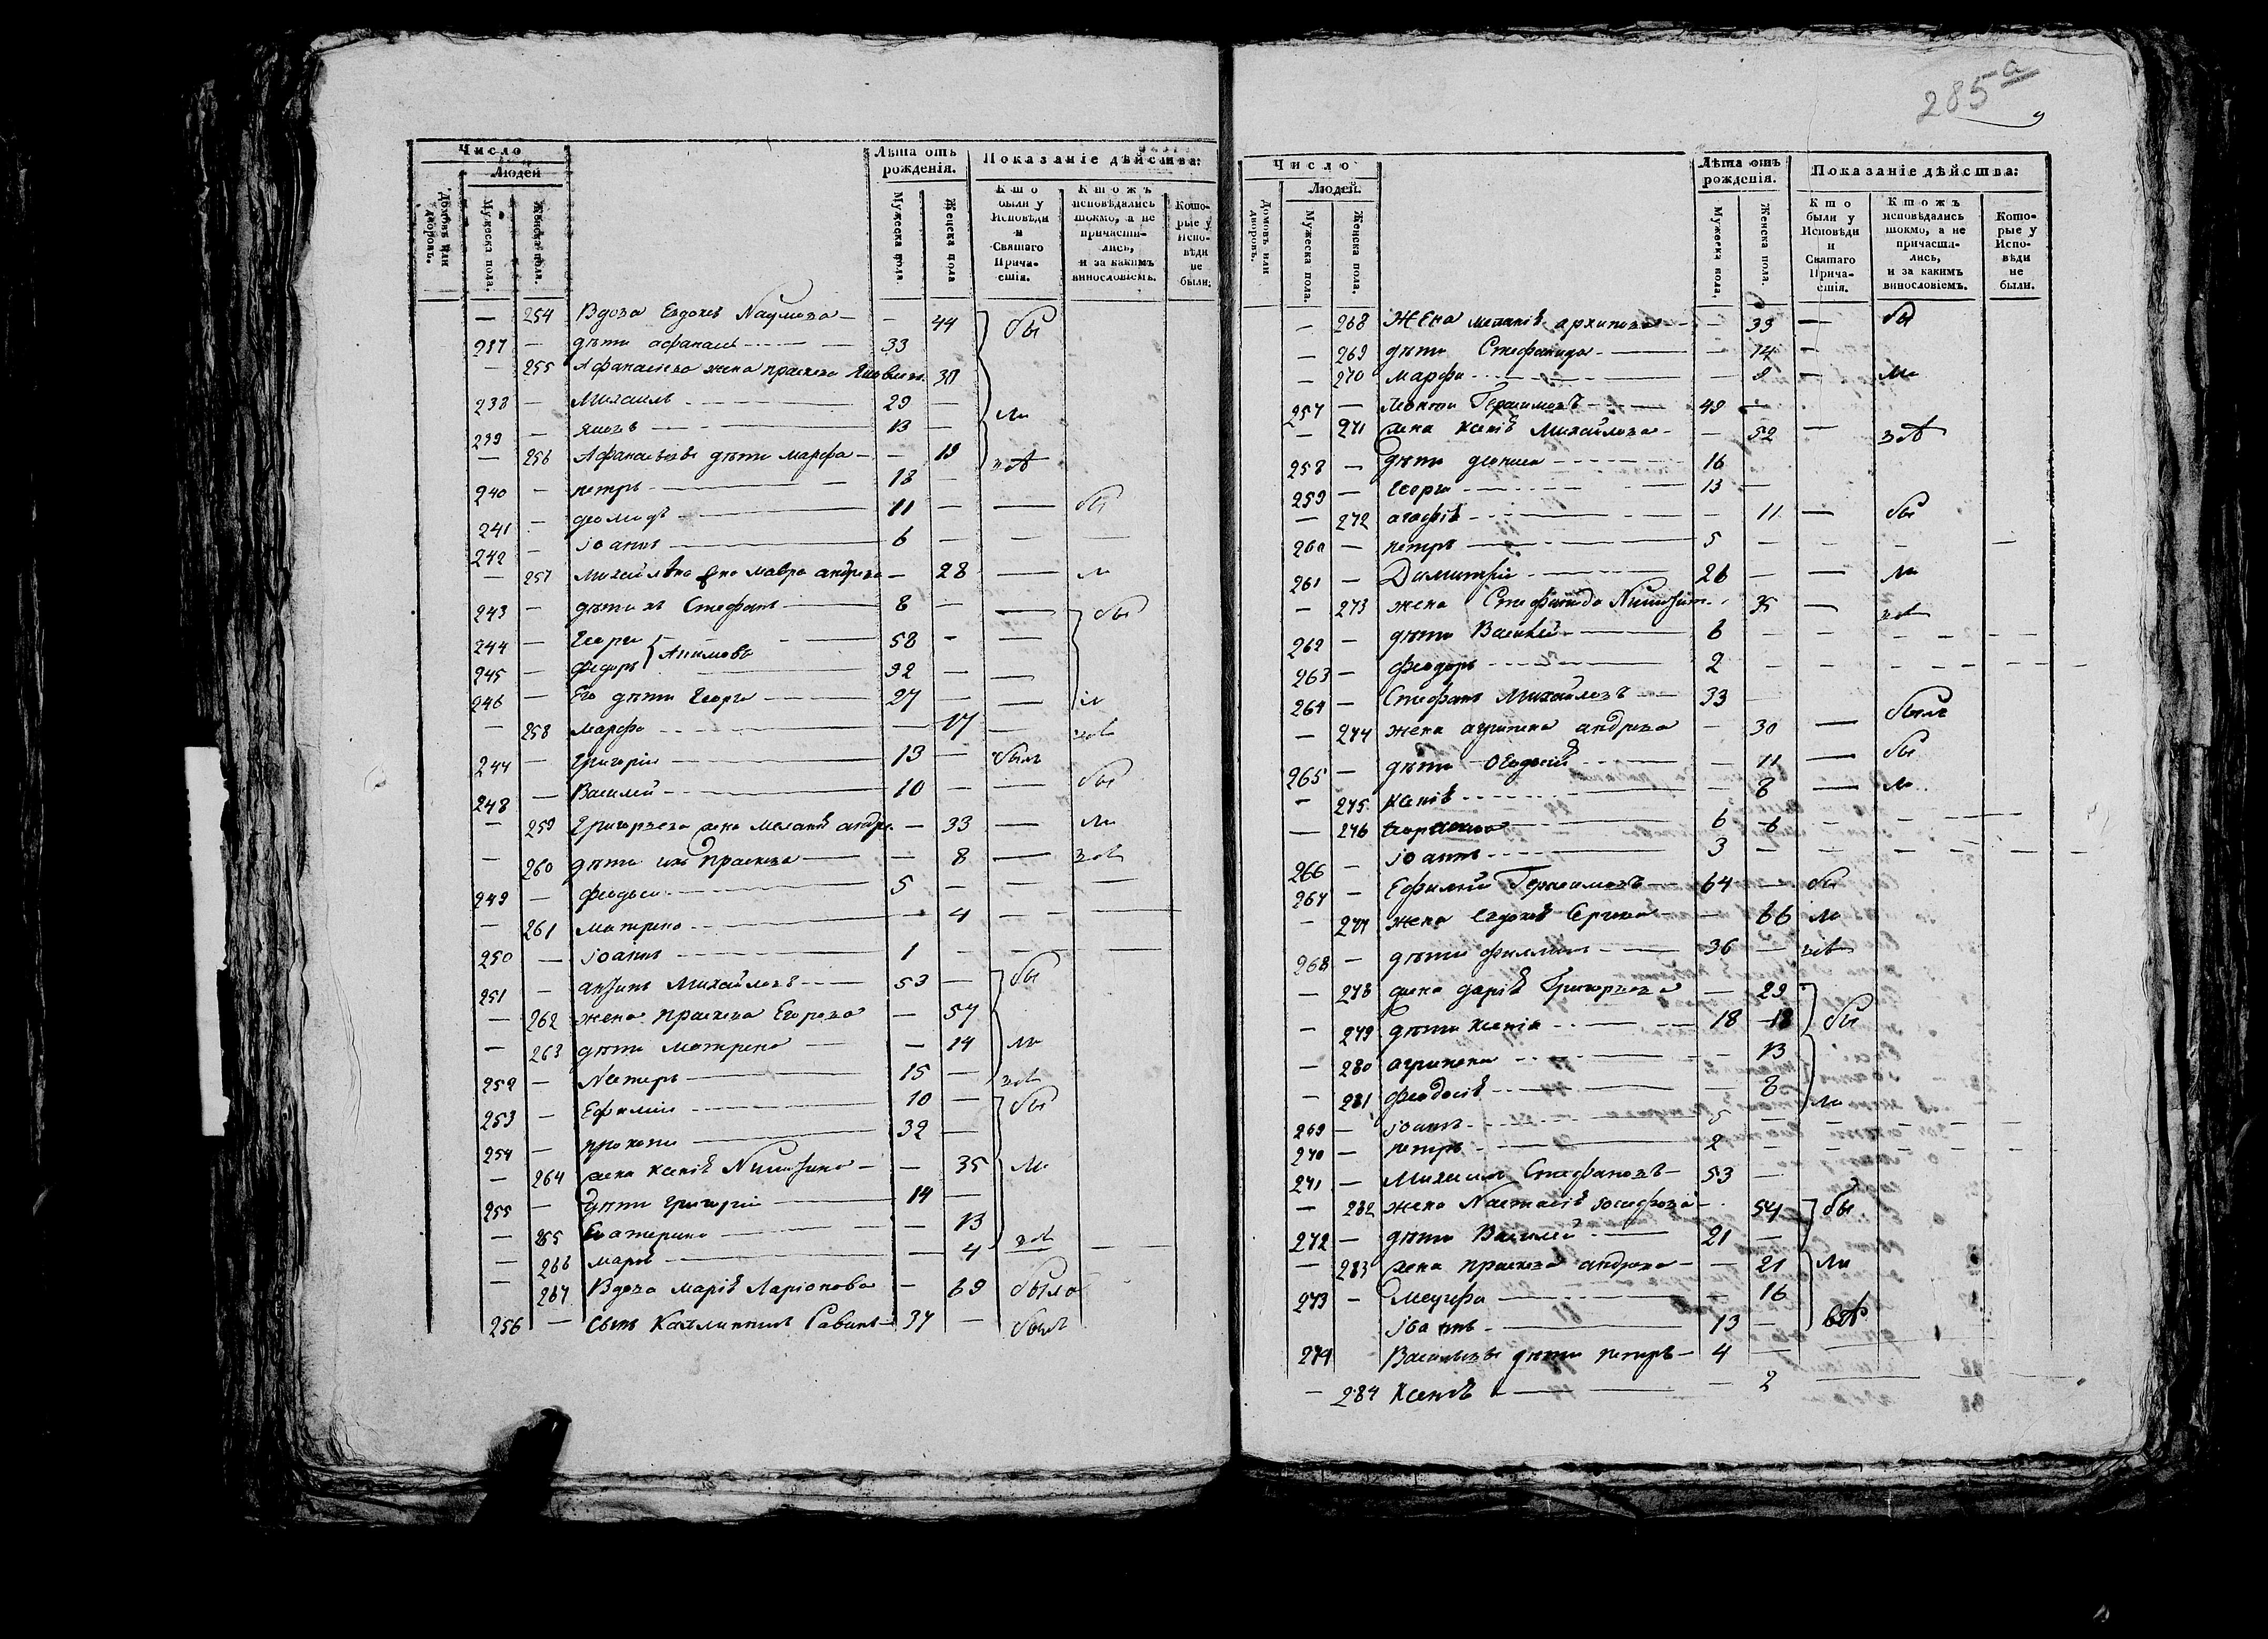 Число
Людей
Домовъ или дворовъ.
Мужеска пола.
Женска пола.
Лѣта отъ рожденія.
Мужеска пола.
Женска пола
Показаніе дѣйства:
Кто были у Исповѣди и Святаго Прича-стія.
Ктожъ исповѣдались токмо, а не причасти-лись, и за какимъ винословіемъ.
Кото-рые у Испо-вѣди не были;
— 254 Вдова Евдокія Наумова — — 44 бы
237 — дѣти афанасей — 33
— 255 Афанасіева жена праскева Яковлева 30
238 — Михаилъ — 29 — ли
239 — Яковъ — 13 —
— 256 Афанасьевы дѣти марфа — — 19
240 — петръ — 18 —
241 — деомидъ — 11 — — бы
242 — іоаннъ — 6 — — —
— 257 жена мавра андрева — 28 — ли
243 — дѣти ихъ Стефанъ — 8 — —
244 — Георги — 58 — — бы
245 — Федоръ Акимовы — 32 — —
246 — Его дѣти Георги — 27 — — ли
— 258 марфа — — 17 —
244 — Григорій — 13 — былъ
248 — Василей — 10 — — бы
— 259 Григорьева жена меланія андре. — 33 — ли
— 260 дѣти ихъ Праскева — — 8 —
249 — Феодосі — 5 — — —
— 261 матрена — — 4 — —
250 — іоаннъ — 1 — — —
251 — Михайловъ — 53 — бы
— 262 жена праскева Егорова — 57
— 263 дѣти матрена — — 14 ли
252 — Петеръ — 15 —
253 — Ефимій — 10 — бы
254 — прокопи — 32 —
— 264 жена ксенія Никитина — — 35 ли
255 — дѣти григорій — 14 —
— 265 Екатерина — — 13
— 266 марія — — 4 — —
— 267 Вдова марія Ларіонова — 69 была
256 — Сынъ Савинъ — 37 — былъ
285а
Число
Людей.
Домовъ или дворовъ.
Мужеска пола.
Женска пола.
Лѣта отъ рожденія.
Мужеска пола,
Женска пола.
Показаніе дѣйства:
Кто были у Исповѣди и Святаго Прича-стія.
Ктожъ исповѣдались токмо, а не причасти-лись, и за какимъ винословіемъ.
Кото-рые у Испо-вѣди не были.
— 268 Жена меланія архипова — — 33 — бы
— 269 дѣти Стефанида — — 14 —
— 270 марфа — — 9 — ли
257 — Леонтій Герасимовъ — 49 —
— 271 жена ксенія Михайлова — — 52 —
258 — дѣти — 16
259 — Георги — 13 —
— 272 агафія — — 11 — бы
260 — петръ — 5 — — — —
261 — Димитрій — 26 — — ли
— 273 жена Стефанида 35 —
262 — дѣти Василей — 6 — — — —
263 — феодоръ — 2 — — — —
264 — Стефанъ Михайловъ — 33 —
— 274 жена агрипена андрева — 30 — былъ
265 — дѣти — 11 — бы
— 275 ксенія — — 8 — ли
— 276 — 6 6 — —
266 — іоаннъ — 3 — — — —
267 — Ефимій Герасимовъ — 64 — бы
— 277 жена евдокія Сергева — — 66 ли
268 — дѣти филипъ — 36 —
— 278 жена дарія Григорьева — 29
— 279 дѣти ксенія — 18 18 бы
— 280 агрипена — — 13
— 281 феодосія — — 8 ли
269 — іоаннъ — 5 — — — —
270 — петръ — 2 — — — —
271 — Михаилъ Стефановъ — 53 —
— 282 жена Настасія Іосифова — 54 бы
272 — дѣти Василей — 21 —
— 283 жена праскева андрева — — 21 ли
273 — — — 16
іоаннъ — 13 —
274 Васильевы дѣти петеръ — 4 — —
— 284 Ксенія — — 2 —